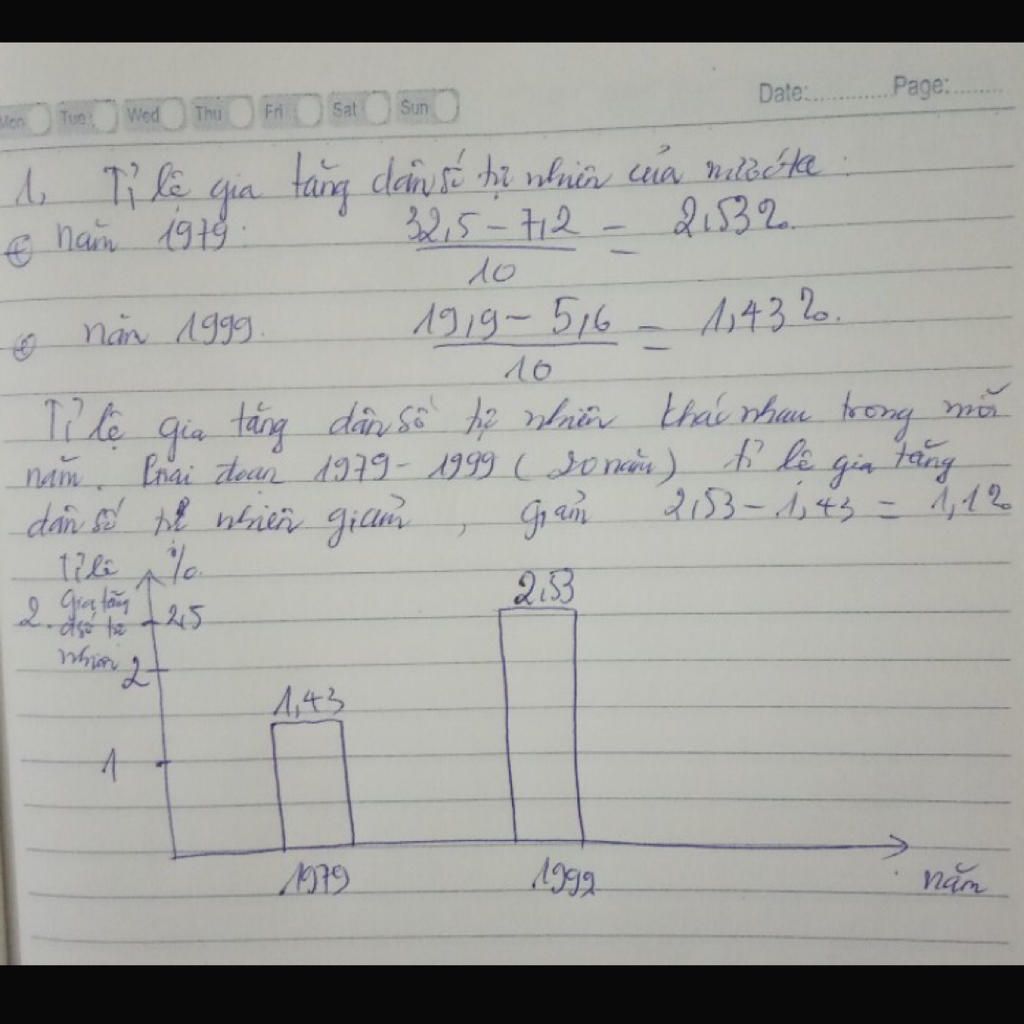 Mon Tue Wed Thu Fri Sat Sun Date:............ Page:.........
1, Tỉ lệ gia tăng dân số tự nhiên của nước ta :
+ năm 1979: 32,5 - 7,2 / 10 = 2,53%.
+ năm 1999. 19,9 - 5,6 / 10 = 1,43%.
Tỉ lệ gia tăng dân số tự nhiên khác nhau trong mỗi
năm. Giai đoạn 1979 - 1999 (20 năm) tỉ lệ gia tăng
dân số tự nhiên giảm, giảm 2,53 - 1,43 = 1,1%
Tỉ lệ %.
2. gia tăng
dsố tự 2,5
nhiên 2
1
1,43
2,53
1979
1999
năm